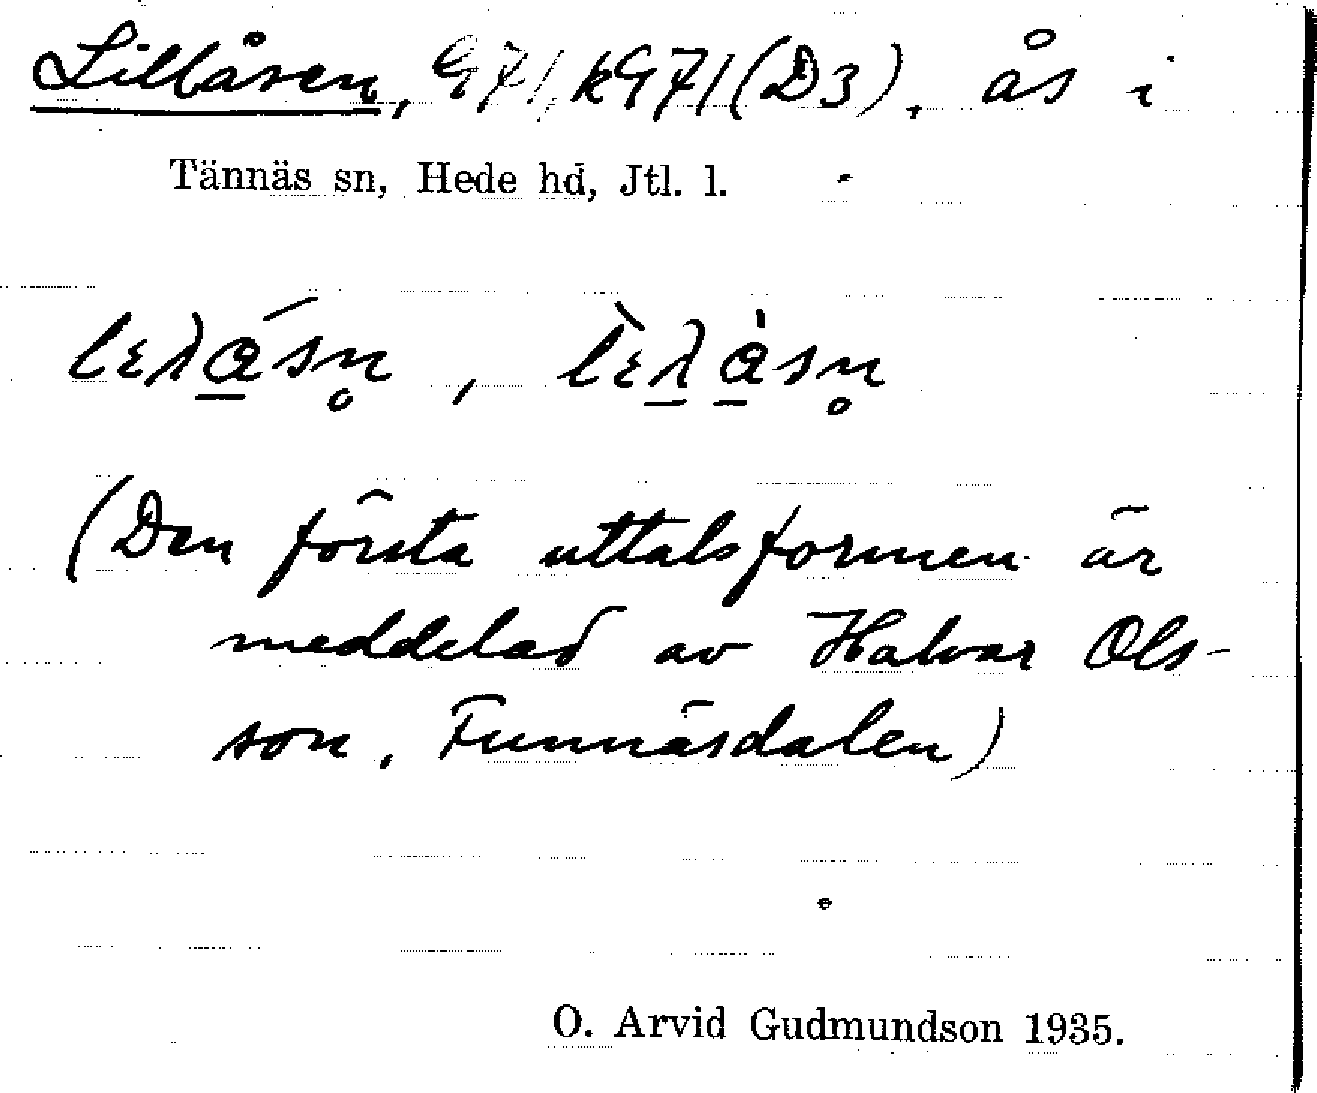 Lillåsen, G71, kG71(D3), ås i
Tännäs sn, Hede hd, Jtl. l.
(Den första uttalsformen är
meddelad av Halvar Ols-
son, Funnäsdalen)
O. Arvid Gudmundson 1935.